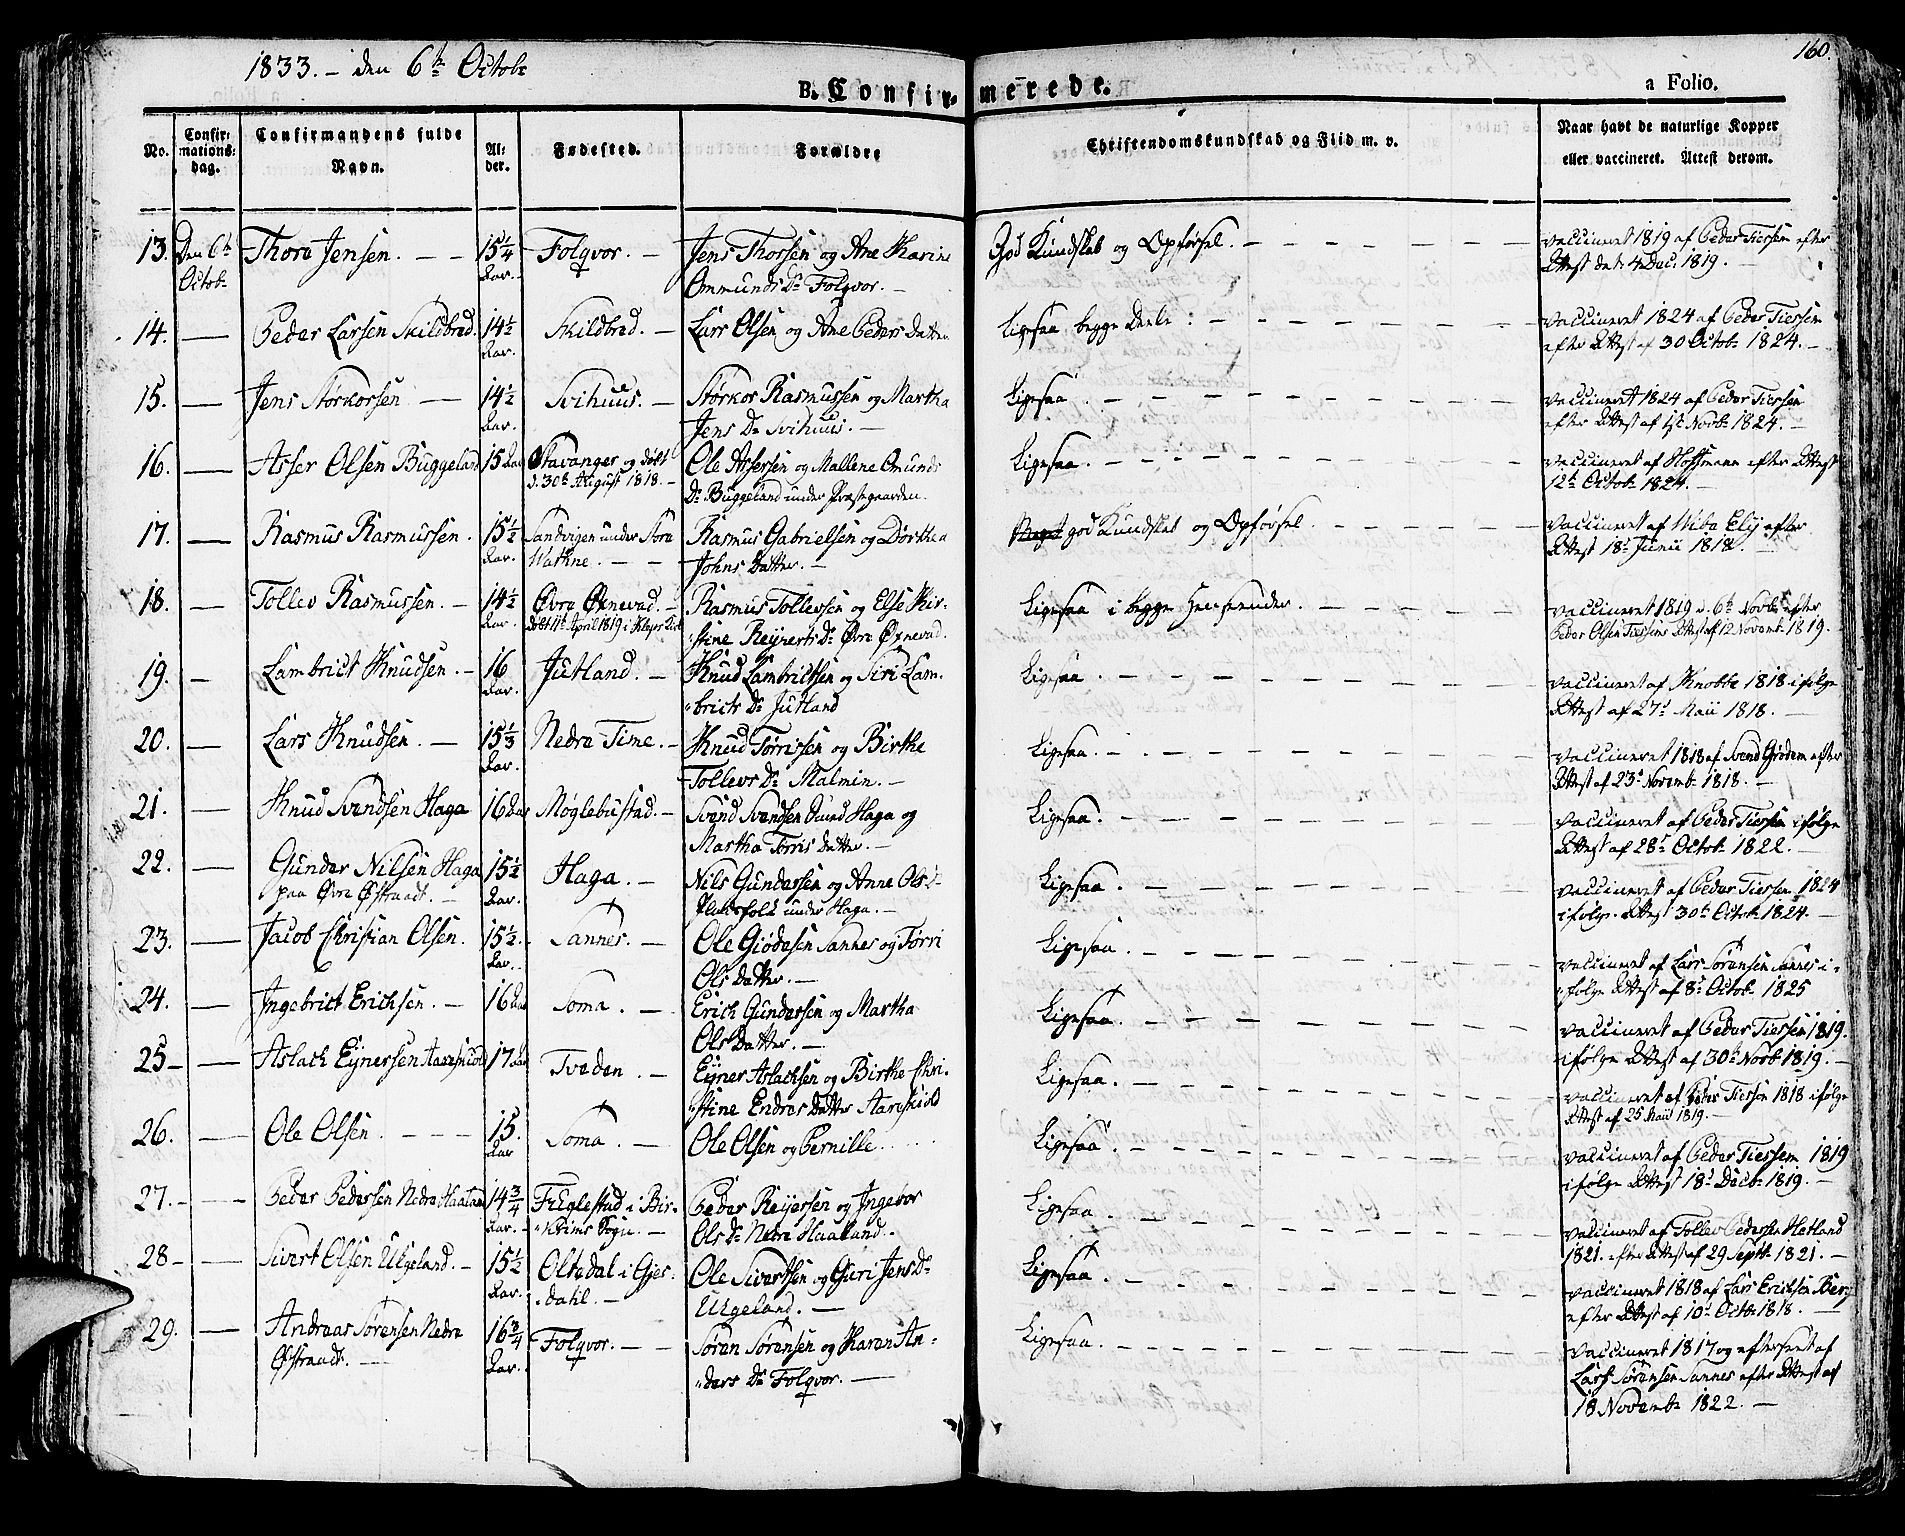 1833. – den 6te Octobr
160.
B. Confirmerede.
a Folio.
No.
Confirmationsdag.
Confirmandens fulde Navn.
Alder.
Fødested.
Forældre
Christendomskundskab og Flid m. v.
Naar havt de naturlige Kopper eller vaccineret. Attest derom.
13. Den 6te Octobr Thore Jensen. – – 15¼ Aar. Folqvor. – Jens Thorsen og Ane Karine
Ommunds Dr Folqvor. –
God Kundskab og Opførsel. –
vaccineret 1819 af Peder Tiessen efter
Attest dat: 4 Dec. 1819. –
14. — Peder Larsen Skildbred. 14½ Aar. Skildbred. – Lars Olsen og Ane Peders Datter.
Ligesaa begge Deele. –
vaccineret 1824 af Peder Tiessen
efter Attest af 30 Octobr 1824. –
15. — Jens Størkorsen — 14½ Aar. Svihuus. – Størkor Rasmussen og Martha
Jens Dr Svihuus. –
Ligesaa. –
vaccineret 1824 af Peder Tiessen
efter Attest af 1ste Novbr 1824. –
16. — Asser Olsen Buggeland 15 Aar Stavanger og døbt
d. 30te August 1818. –
Ole Assersen og Mallene Omunds
Dr Buggeland under Præstegaarden.
Ligesaa. –
vaccineret af Hoffmann efter Attest
12te Octobr 1824. –
17. — Rasmus Rasmussen. 15½ Aar. Sandvigen under Store
Wathne. – –
Rasmus Gabrielsen og Dorthea
Johns Datter. –
Meget god Kundskab og Opførsel. –
vaccineret af Wibe Elg efter
Attest 18de Junii 1818. –
18. — Tollev Rasmussen. – 14½ Aar. Øvre Øxnevad. –
døbt 11te April 1819 i Kleps Kirke
Rasmus Tollevsen og Else Kir-
stine Reinerts Dr Øvre Øxnevad.
Ligesaa i begge Henseender. –
vaccineret 1819 d. 6te Novbr efter
Peder Olsen Tiessens Attest af 12 Novembr 1819.
19. — Lambrict Knudsen. – 16 Aar. Jutland. – Knud Lambrictsen og Siri Lam-
bricts Dr Jutland
Ligesaa. –
vaccineret af Knobbe 1818 ifølge
Attest af 27de Maii 1818. –
20. — Lars Knudsen. – 15⅓ Aar. Nedre Time. – Knud Tørrissen og Birthe
Tollevs Dr Malmin. –
Ligesaa. –
vaccineret 1818 af Svend Grødem efter
Attest af 23de Novembr 1818. –
21. — Knud Svendsen Haga 16 Aar Møglebustad. – Svend Svendsen Haga og
Martha Torris Datter. –
Ligesaa. –
vaccineret af Peder Tiessen ifølge
Attest af 28de Octobr 1822. –
22. — Gunder Nilsen Haga
paa Øvre Østraadt. –
15½ Aar. Haga. – Nils Gundersen og Anne Ols Dr
Pladsfolk under Haga. –
Ligesaa. –
vaccineret af Peder Tiessen 1824
ifølge Attest 30te Octobr 1824. –
23. — Jacob Christian Olsen. 15½ Aar. Sannes. – Ole Giødesen Sannes og Torri
Ols Datter. –
Ligesaa. –
vaccineret af Lars Sørensen Sannes i-
følge Attest af 8de Octobr 1825
24. — Ingebrict Erichsen. – 16 Aar Soma. – Erich Gundersen og Martha
Ols Datter. –
Ligesaa. –
vaccineret af Peder Tiessen 1819.
ifølge Attest af 30te Novbr 1819. –
25 – — Aslach Ejnersen Aareskiold 17 Aar Tveden. – Ejner Aslachsen og Birthe Chri-
stine Endres Datter Aareskiold
Ligesaa. –
vaccineret af Peder Tiessen 1818 ifølge
Attest af 25 Maii 1819. –
26. — Ole Olsen. – – – 15. Aar Soma. – Ole Olsen og Pernille. . . .
Ligesaa –
vaccineret af Peder Tiessen 1819
ifølge Attest 18de Decbr 1819. –
27. – — Peder Pedersen Nedre Haaland 14¾ Aar. – Fuglestad i Bir-
krims Sogn. –
Peder Reiersen og Ingebor
Ols Dr Nedre Haaland. –
Ligesaa. –
vaccineret af Tollev Pedersen Hetland
1821. efter Attest af 29 Septbr 1821. –
28 – — Sivert Olsen Uhgeland. – 15½ Aar. Oltedal i Gjes-
dahl. –
Ole Sivertsen og Guri Jens Dr
Uhgeland. –
Ligesaa. –
vaccineret 1818 af Lars Erichsen Berg
efter Attest af 10de Octbr 1818. –
29. — Andreas Sørensen Nedre
Østraadt. –
16¾ Aar. Folqvor. – – Søren Sørensen og Karen An-
ders Dr Folqvor. –
Ligesaa. –
vaccineret 1817 og efterseet af
Lars Sørensen Sannes efter Attest af
18 Novembr 1822. –